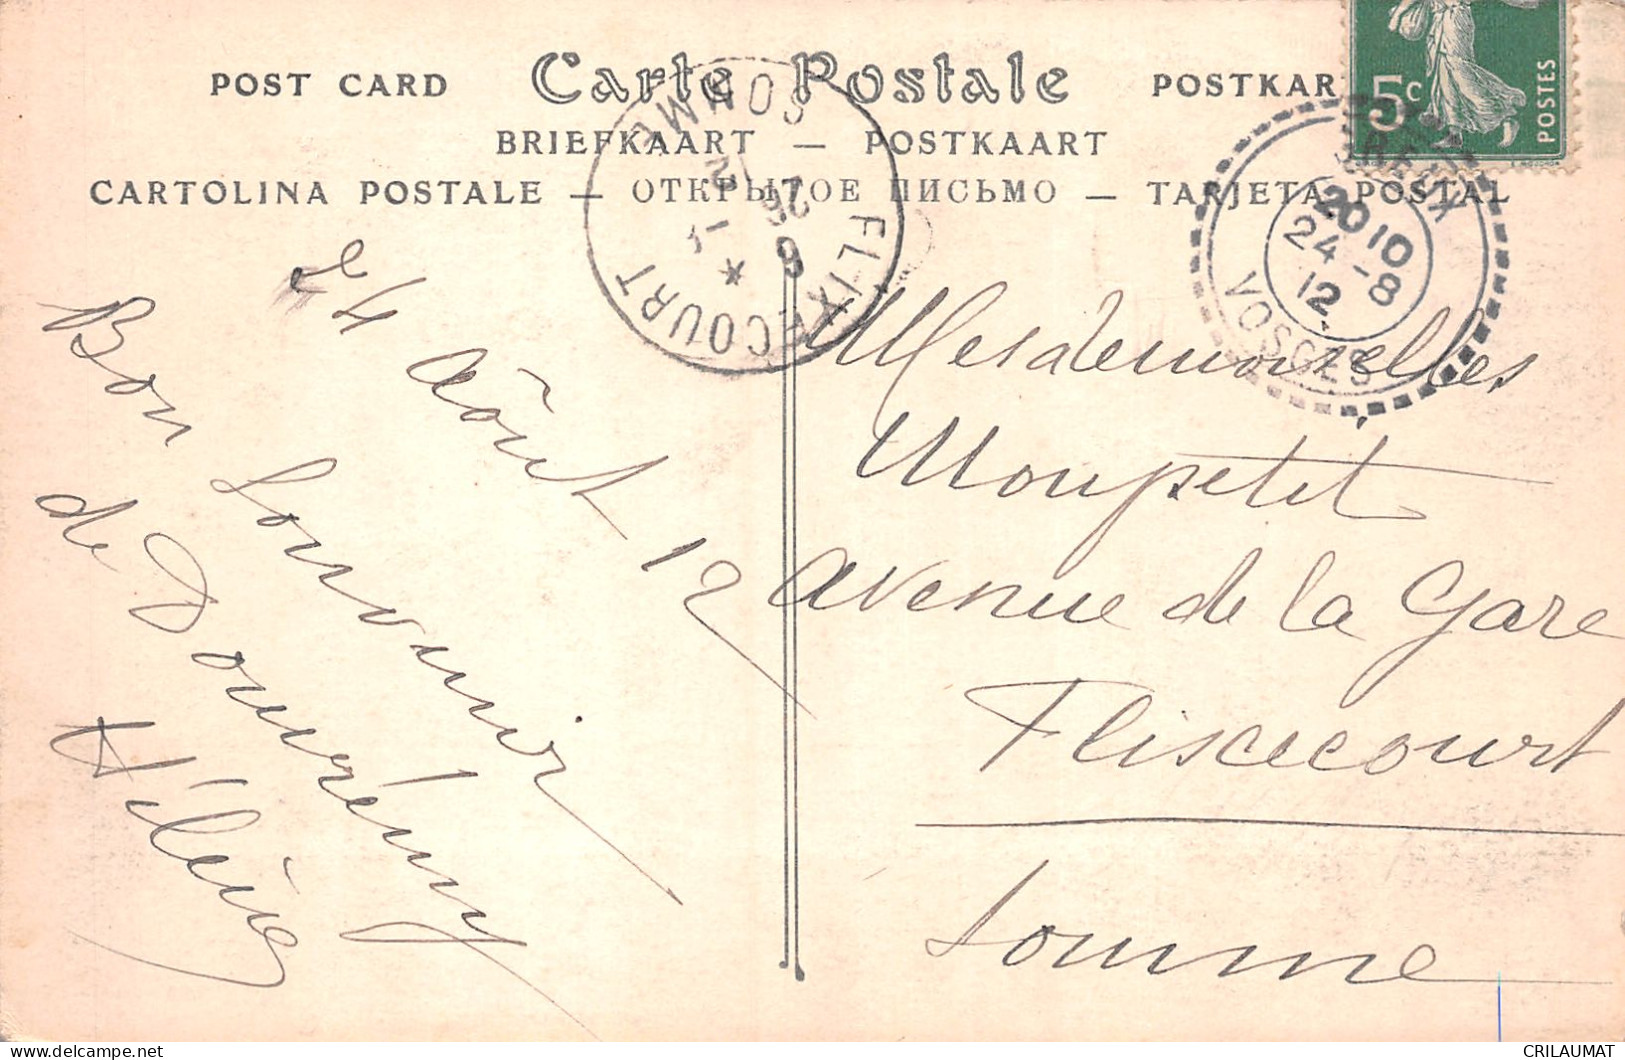 POST CARD Carte Postale POSTKAR
BRIEFKAART — POSTKAART
CARTOLINA POSTALE — ОТКРЫТОЕ ПИСЬМО — TARJETA POSTAL
5c
POSTES
SOMME
FLIXECOURT
26
8
12
20 10
24 - 8
12
VOSGES
24 Août 12
Bon Souvenir
de Domrémy
Hélène
Mesdemoiselles
Monpetit
Avenue de la Gare
Flixecourt
Somme
CRILAUMAT